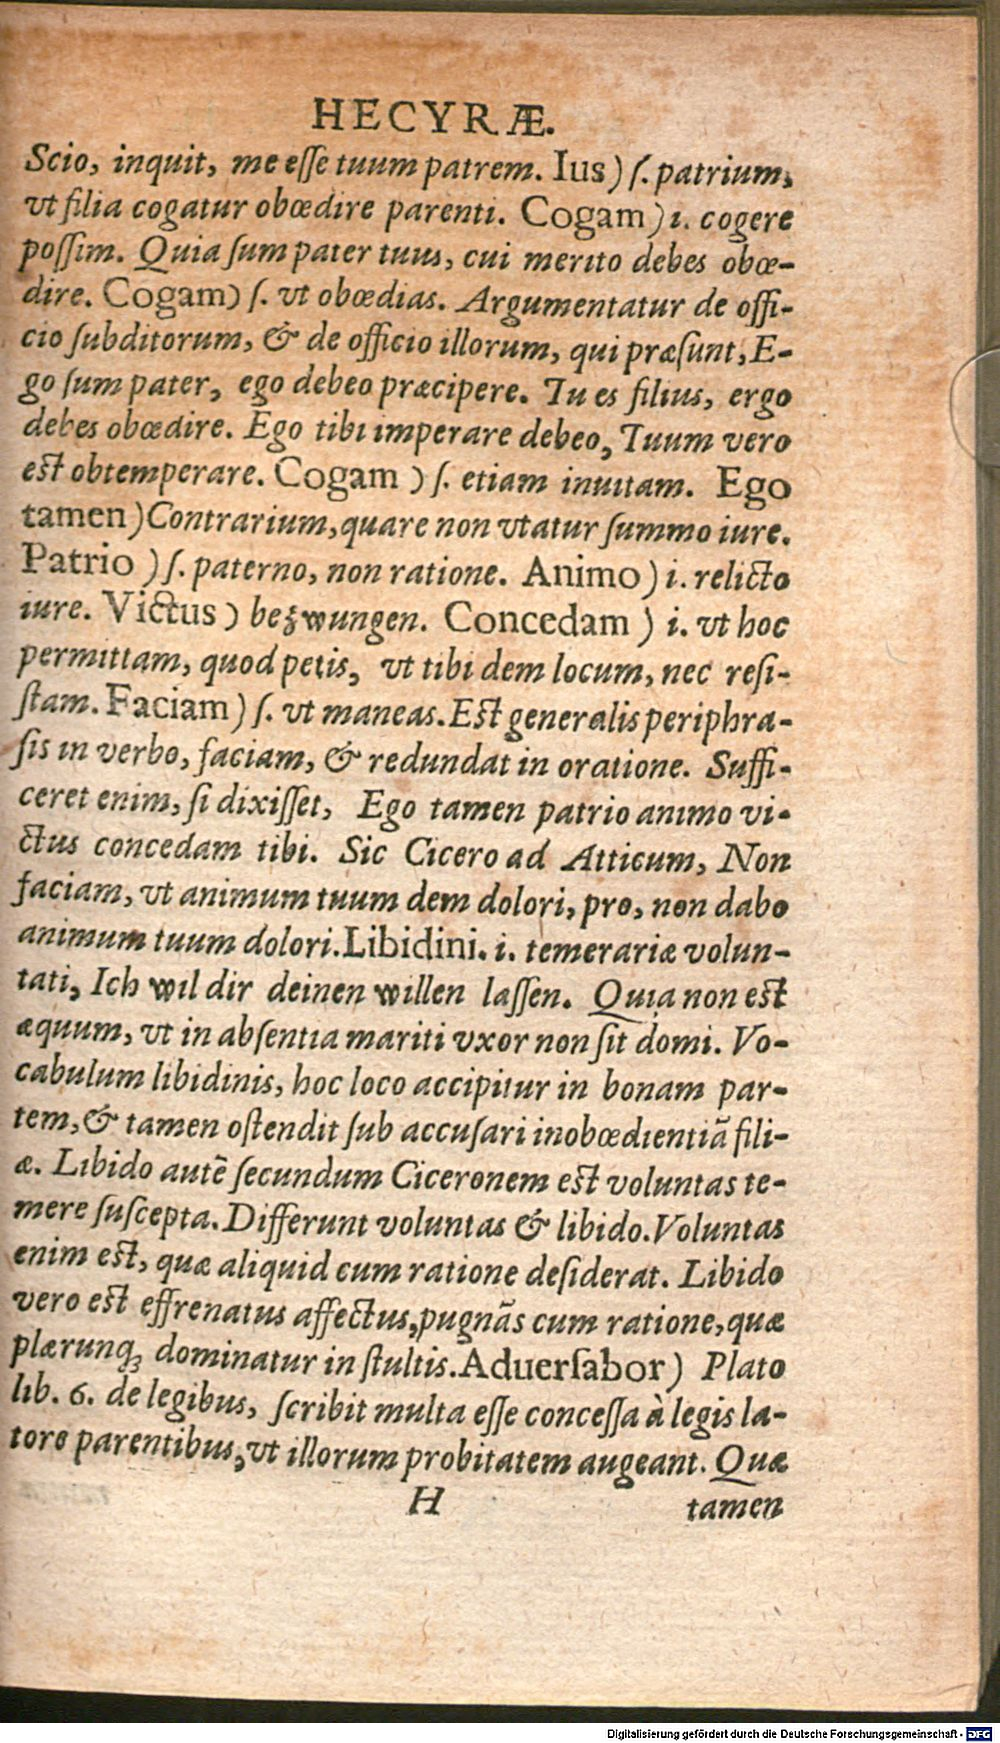 HECYRÆ.
Scio, inquit, me eſſe tuum patrem. Ius) ſ. patrium,
vt filia cogatur obœdire parenti. Cogam) i. cogere
poſſim. Quia ſum pater tuus, cui merito debes obœ-
dire. Cogam) ſ. vt obœdias. Argumentatur de offi-
cio ſubditorum, & de officio illorum, qui præſunt, E-
go ſum pater, ego debeo præcipere. Tu es filius, ergo
debes obœdire. Ego tibi imperare debeo, Tuum vero
est obtemperare. Cogam) ſ. etiam inuitam. Ego
tamen) Contrarium, quare non vtatur ſummo iure.
Patrio) ſ. paterno, non ratione. Animo) i. relicto
iure. Victus) bezwungen. Concedam) i. vt hoc
permittam, quod petis, vt tibi dem locum, nec reſi-
ſtam. Faciam) ſ. vt maneas. Est generalis periphra-
ſis in verbo, faciam, & redundat in oratione. Suffi-
ceret enim, ſi dixiſſet, Ego tamen patrio animo vi-
ctus concedam tibi. Sic Cicero ad Atticum, Non
faciam, vt animum tuum dem dolori, pro, non dabo
animum tuum dolori. Libidini. i. temerariæ volun-
tati, Ich wil dir deinen willen laſſen. Quia non est
æquum, vt in abſentia mariti vxor non ſit domi. Vo-
cabulum libidinis, hoc loco accipitur in bonam par-
tem, & tamen oſtendit ſub accuſari inobœdientiā fili-
æ. Libido autē ſecundum Ciceronem est voluntas te-
mere ſuſcepta. Differunt voluntas & libido. Voluntas
enim est, quæ aliquid cum ratione deſiderat. Libido
vero est effrenatus affectus, pugnās cum ratione, quæ
plærunq; dominatur in ſtultis. Aduerſabor) Plato
lib. 6. de legibus, ſcribit multa eſſe conceſſa à legis la-
tore parentibus, vt illorum probitatem augeant. Quæ
H tamen
Digitalisierung gefördert durch die Deutsche Forschungsgemeinschaft - DFG